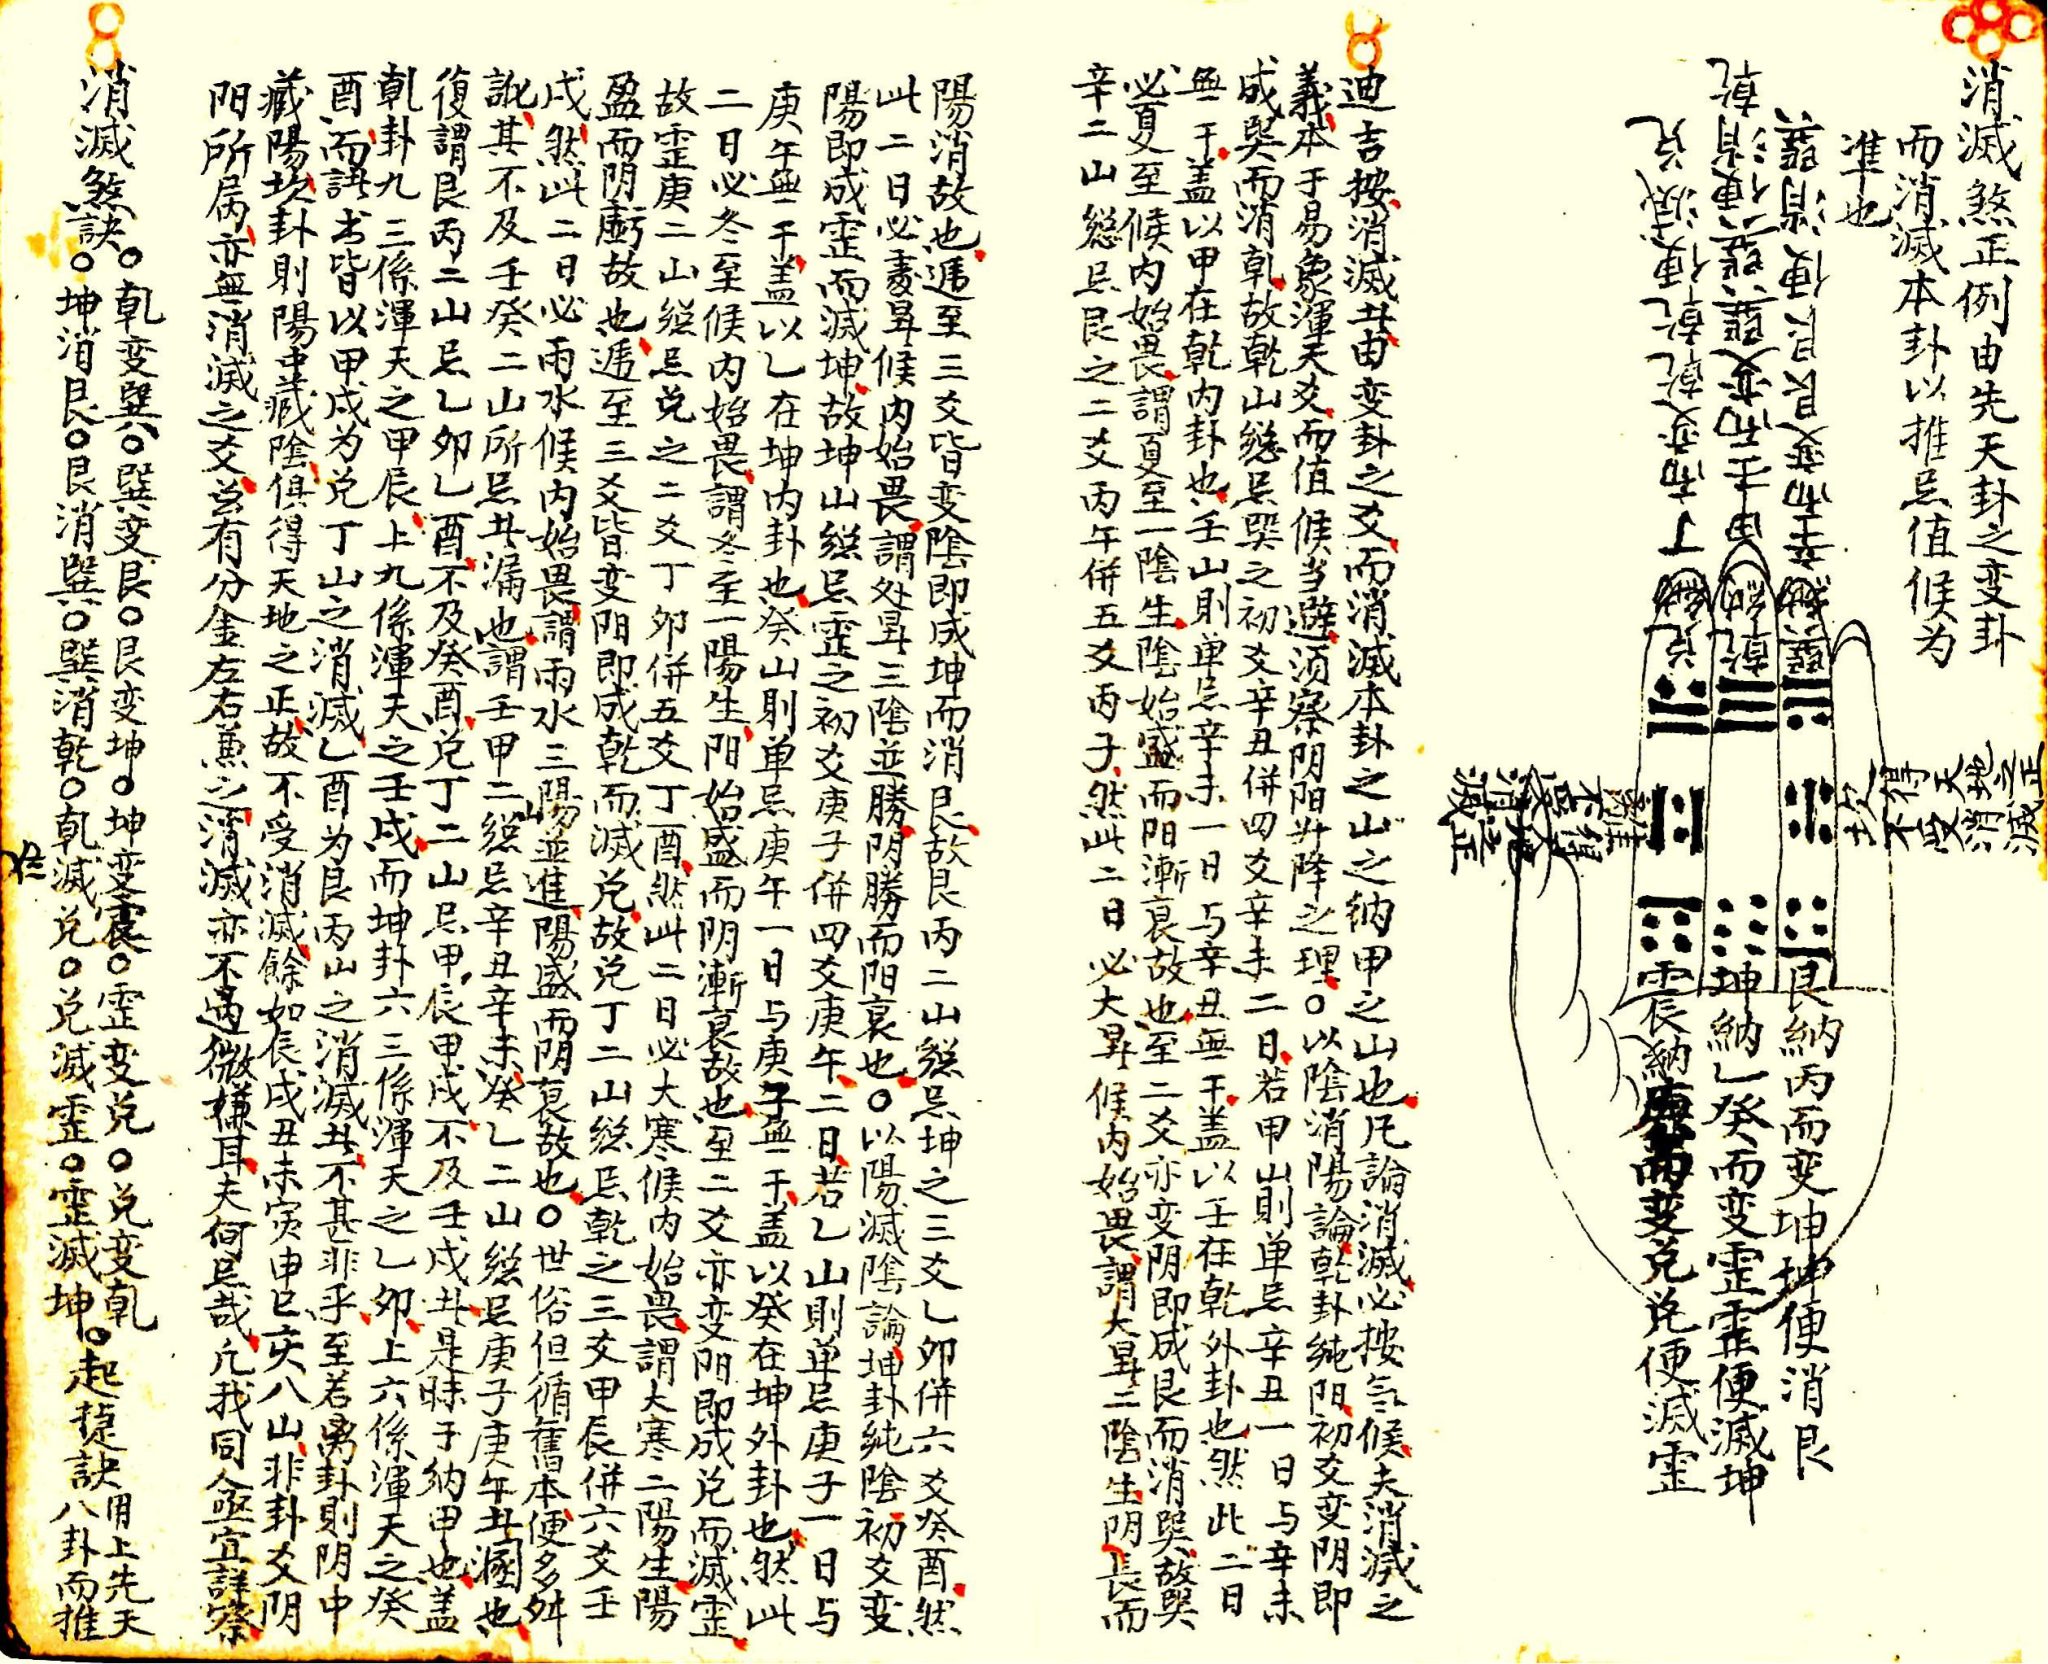 消滅煞正例由先天卦之变卦
而消滅本卦以推忌值候为
準也
巽納辛而变艮艮便消巽
乾納甲壬而变巽巽便消乾
兌納丁而变乾乾便滅兌
坎不得受天地消滅之正
離不得受天地消滅之正
艮納丙而变坤坤便消艮
坤納乚癸而变霊霊便滅坤
震納庚而变兌兌便滅霊
迪吉按消滅共由变卦之爻而消滅本卦之山之納甲之山也凡論消滅必按氣候夫消滅之
義本于易象渾天爻而值候当避须察阴阳升降之理○以陰消陽論乾卦純阳初爻变阴即
成巽而消乾故乾山緫忌巽之初爻辛丑併四爻辛未二日若甲山則单忌辛丑一日与辛未
無干盖以甲在乾内卦也壬山則单忌辛未一日与辛丑無干盖以壬在乾外卦也然此二日
必夏至候内始畏謂夏至一陰生陰始盛而阳漸衰故也至二爻亦变阴即成艮而消巽故巽
辛二山緫忌艮之二爻丙午併五爻丙子然此二日必大暑候内始畏謂大暑二陰生阴長而
陽消故也遞至三爻皆变陰即成坤而消艮故艮丙二山緫忌坤之三爻乚卯併六爻癸酉然
此二日必處暑候内始畏謂处暑三陰並勝阴勝而阳衰也○以陽滅陰論坤卦純陰初爻变
陽即成霊而滅坤故坤山緫忌霊之初爻庚子併四爻庚午二日若乚山則单忌庚子一日与
庚午無干盖以乚在坤内卦也癸山則单忌庚午一日与庚子無干盖以癸在坤外卦也然此
二日必冬至候内始畏謂冬至一陽生阳始盛而阴漸衰故也至二爻亦变阳即成兌而滅霊
故霊庚二山緫忌兌之二爻丁卯併五爻丁酉然此二日必大寒候内始畏謂大寒二陽生陽
盈而阴虧故也遞至三爻皆变阳即成乾而滅兌故兌丁二山緫忌乾之三爻甲辰併六爻壬
戌然此二日必雨水候内始畏謂雨水三陽並進陽盛而阴衰故也○世俗但循舊本便多舛
訛其不及壬癸二山所忌共漏也謂壬甲二山緫忌辛丑辛未癸乚二山緫忌庚子庚午共溷也
復謂艮丙二山忌乚卯乚酉不及癸酉兌丁二山忌甲辰甲戌不及壬戌共是昧于納甲也盖
乾卦九三係渾天之甲辰上九係渾天之壬戌而坤卦六三係渾天之乚卯上六係渾天之癸
酉而諸书皆以甲戌为兌丁山之消滅乚酉为艮丙山之消滅共不甚非乎至若离卦則阴中
藏陽坎卦則陽中藏陰俱得天地之正故不受消滅餘如辰戌丑未寅申巳亥八山非卦爻阴
阳所属亦無消滅之爻若有分金左右兼之消滅亦不過微嫌耳夫何忌哉凡我同仝亟宜詳察
消滅煞訣○乾变巽○巽变艮○艮变坤○坤变震○霊变兌○兌变乾
○坤消艮○艮消巽○巽消乾○乾滅兌○兌滅霊○霊滅坤○起捷訣用上先天
八卦而推